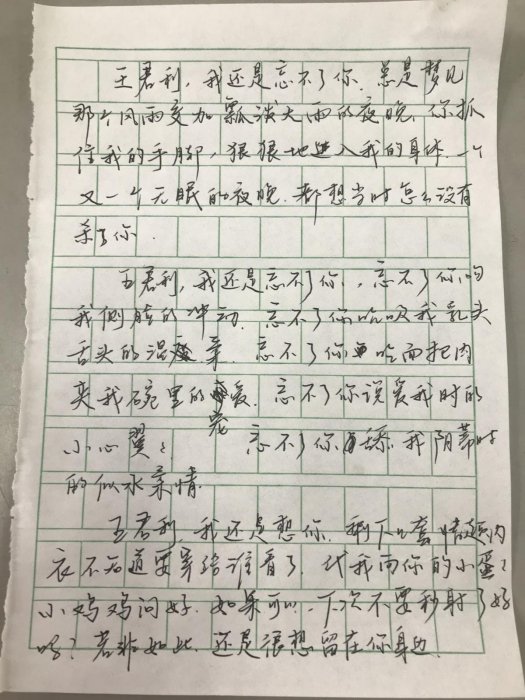 王君利，我还是忘不了你。总是梦见
那个风雨交加瓢泼大雨的夜晚，你抓
住我的手脚，狠狠地进入我的身体。一个
又一个无眠的夜晚，都想当时怎么没有
杀了你。
王君利，我还是忘不了你，忘不了你吻
我侧脸的冲动，忘不了你吮吸我乳头
舌头的温柔，忘不了你吃面把肉
夹我碗里的宠爱，忘不了你说爱我时的
小心翼翼，忘不了你舔我阴蒂时
的似水柔情。
王君利，我还是想你，剩下几套情趣内
衣不知道要穿给谁看了，代我向你的小蛋蛋
小鸡鸡问好，如果可以，下次不要秒射了好
吗？若非如此，还是很想留在你身边。